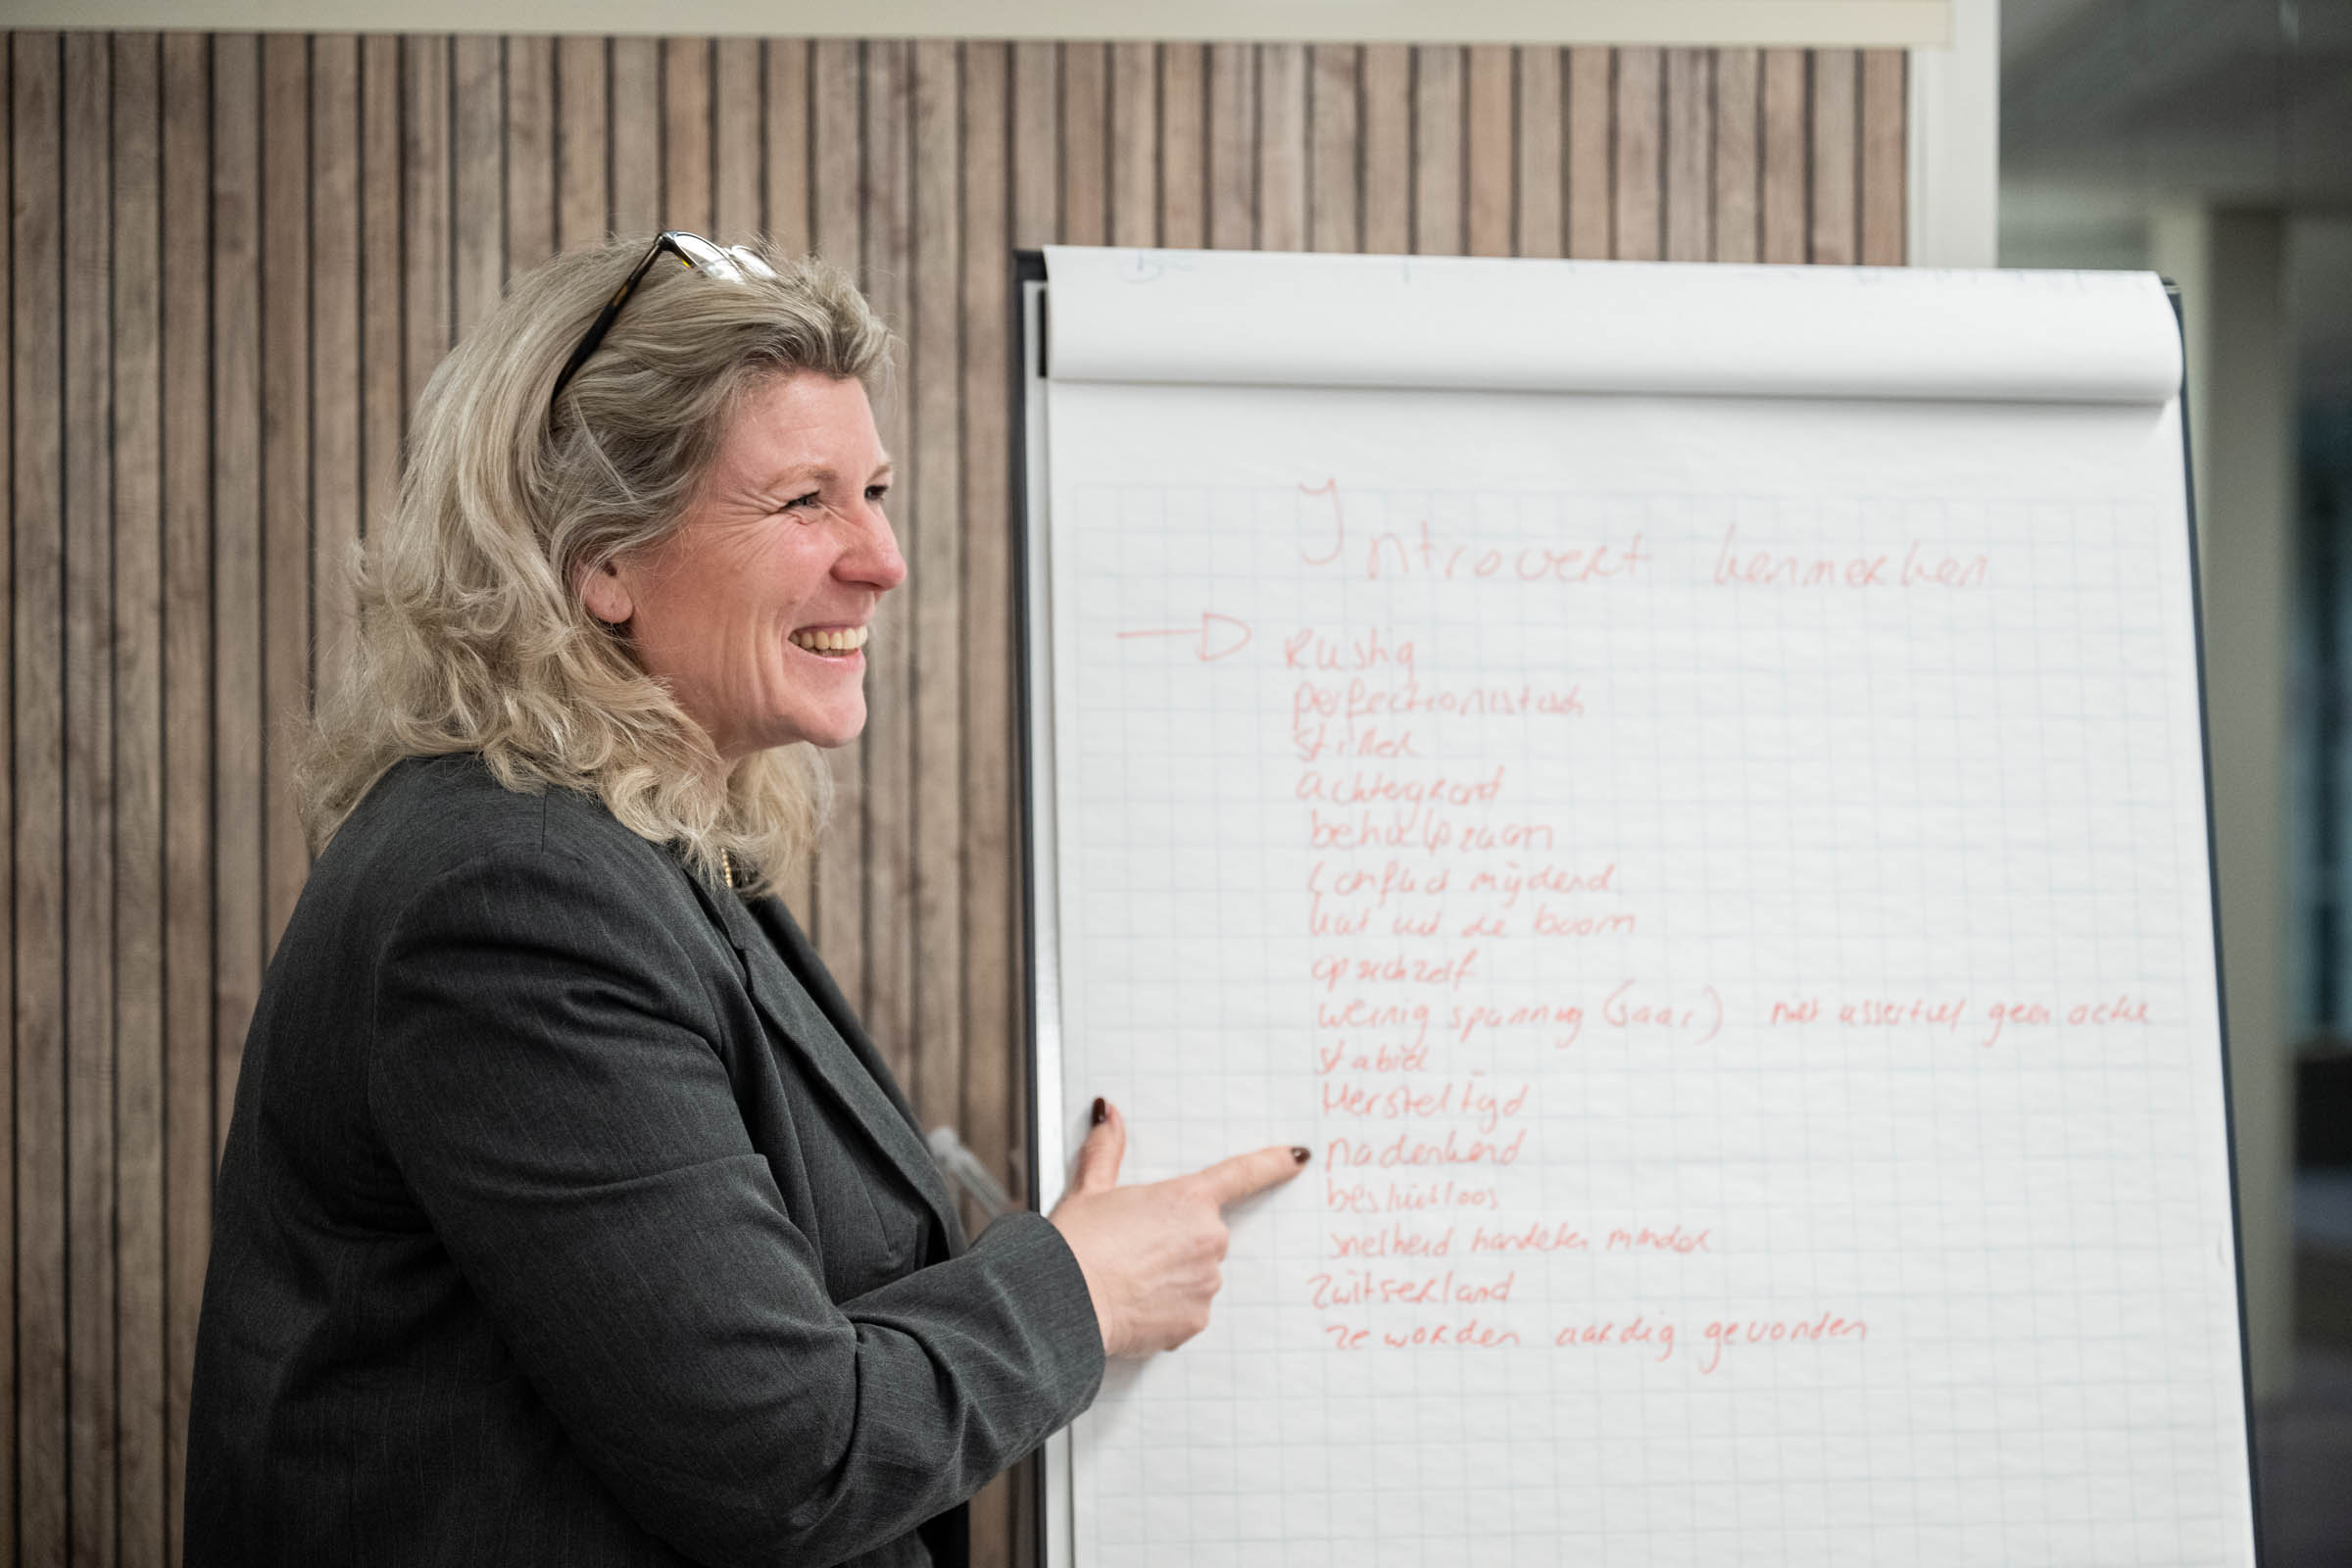 Introvert kenmerken
Rustig
perfectionistisch
stiller
achtergrond
behulpzaam
Conflict mijdend
kat uit de boom
op zichzelf
weinig spanning (saai) niet assertief geen actie
stabiel
Hersteltijd
nadenkend
besluitloos
snelheid handelen minder
Zwitserland
ze worden aardig gevonden